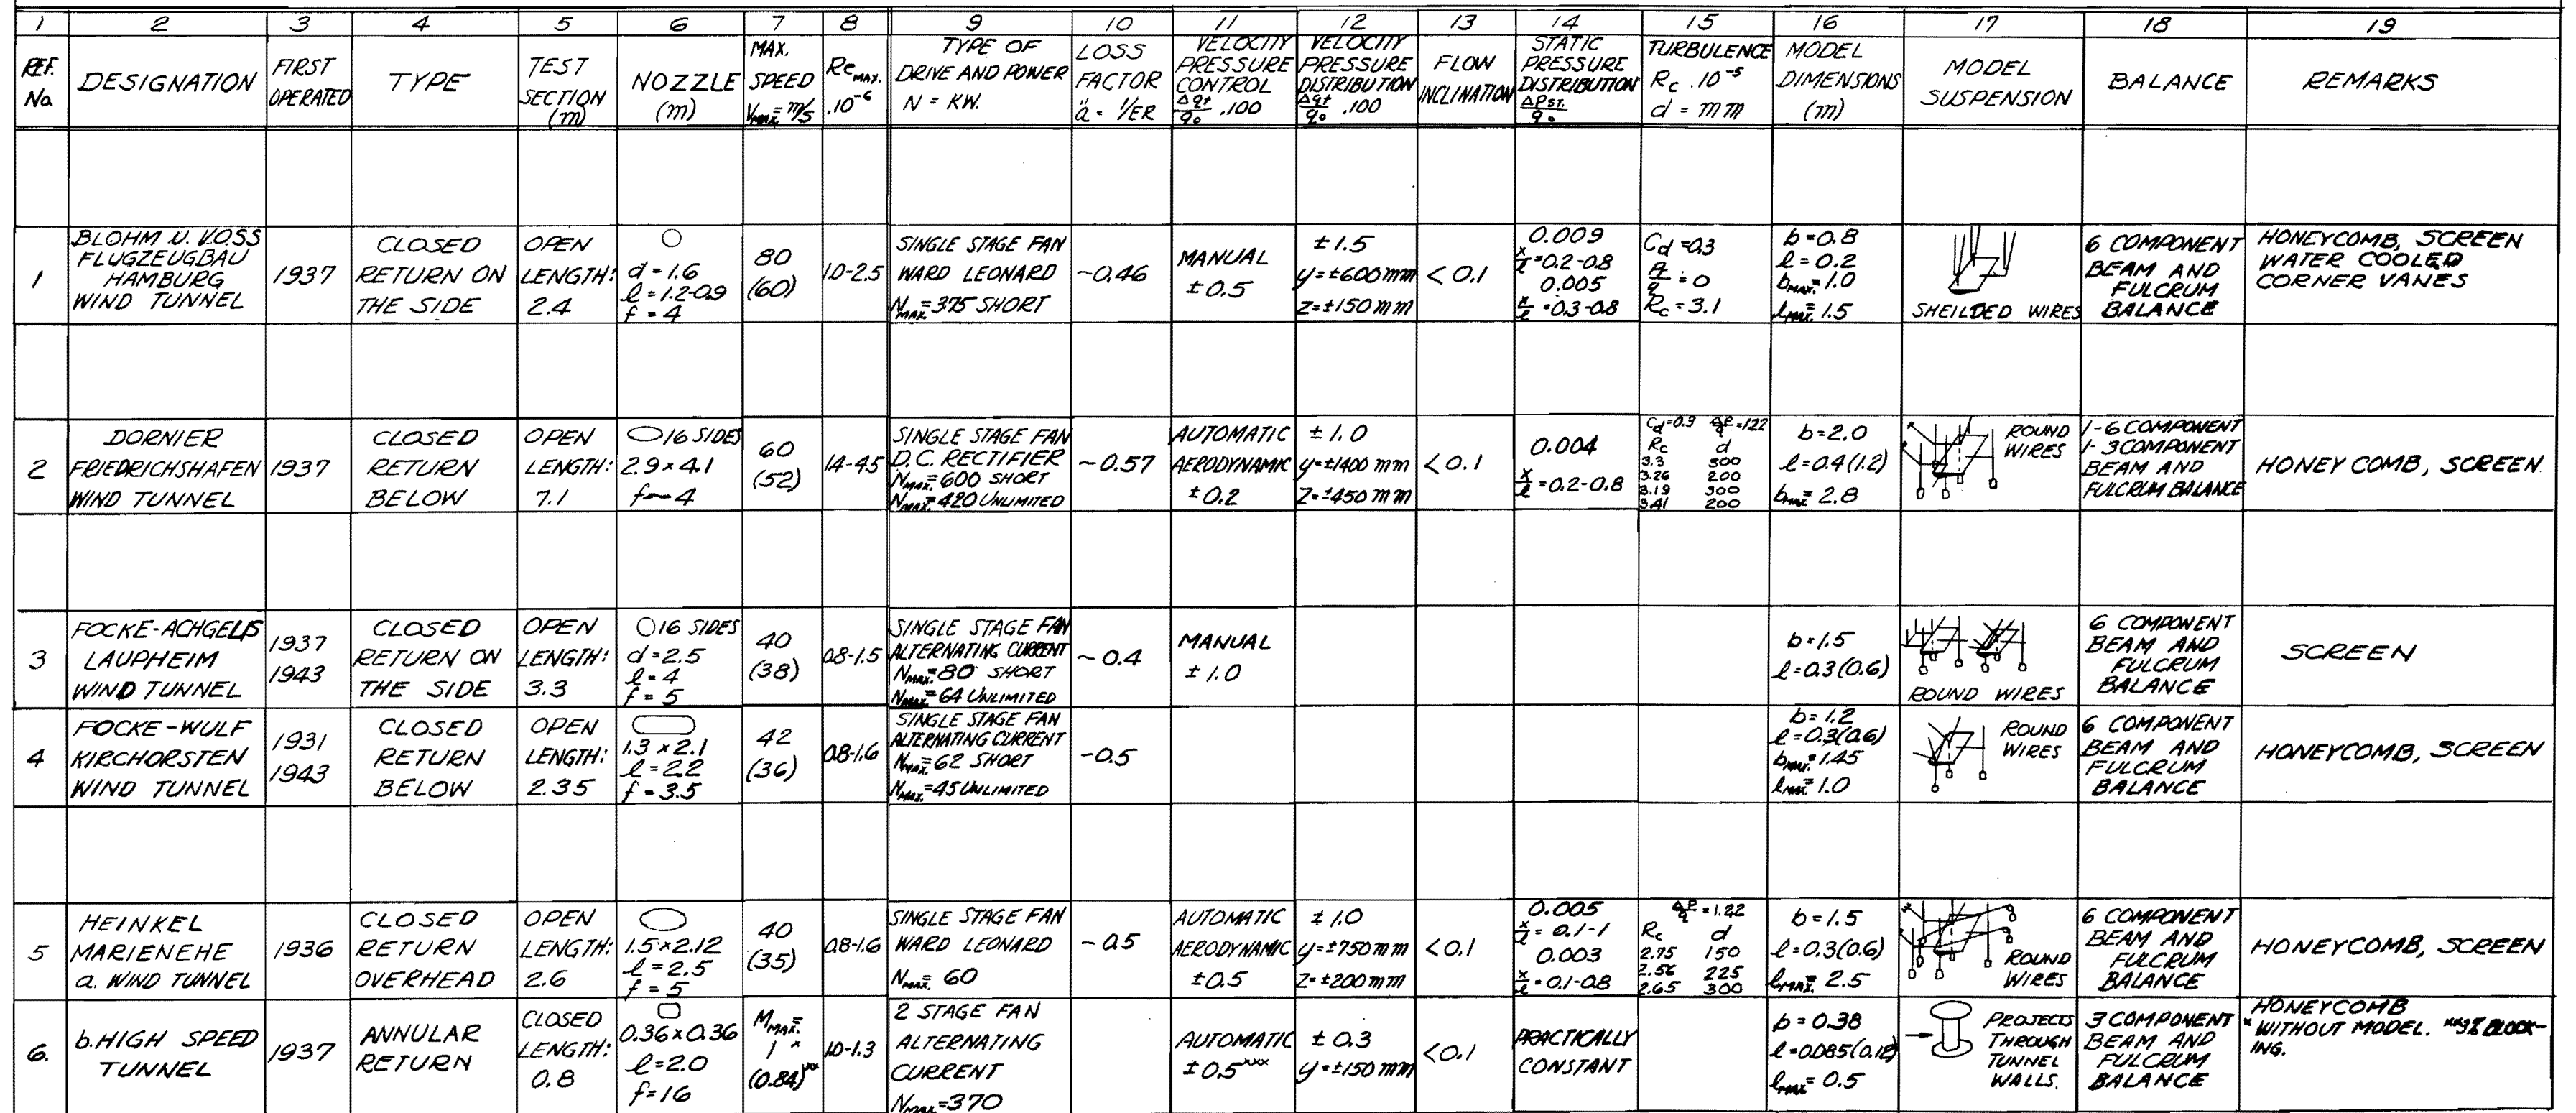 1 2 3 4 5 6 7 8 9 10 11 12 13 14 15 16 17 18 19
REF. No.
DESIGNATION
FIRST OPERATED
TYPE
TEST SECTION (m)
NOZZLE (m)
MAX. SPEED VMAX.= m/s
ReMAX. .10⁻⁶
TYPE OF DRIVE AND POWER N = KW.
LOSS FACTOR a = 1/ER
VELOCITY PRESSURE CONTROL Δqt/q₀ .100
VELOCITY PRESSURE DISTRIBUTION Δqt/q₀ .100
FLOW INCLINATION
STATIC PRESSURE DISTRIBUTION ΔPST./q₀
TURBULENCE Rc .10⁻⁵ d = mm
MODEL DIMENSIONS (m)
MODEL SUSPENSION
BALANCE
REMARKS
1
BLOHM U. VOSS
FLUGZEUGBAU
HAMBURG
WIND TUNNEL
1937
CLOSED
RETURN ON
THE SIDE
OPEN
LENGTH:
2.4
d = 1.6
l = 1.2-0.9
f = 4
80
(60)
1.0-2.5
SINGLE STAGE FAN
WARD LEONARD
NMAX.=375 SHORT
~0.46
MANUAL
±0.5
±1.5
y=±600mm
z=±150mm
<0.1
0.009
x/l =0.2-0.8
0.005
x/l =0.3-0.8
Cd =0.3
P/q =0
Rc = 3.1
b=0.8
l=0.2
bMAX.=1.0
lMAX.=1.5
SHEILDED WIRES
6 COMPONENT
BEAM AND
FULCRUM
BALANCE
HONEYCOMB, SCREEN
WATER COOLED
CORNER VANES
2
DORNIER
FRIEDRICHSHAFEN
WIND TUNNEL
1937
CLOSED
RETURN
BELOW
OPEN
LENGTH:
7.1
16 SIDES
2.9 × 4.1
f ~ 4
60
(52)
1.4-4.5
SINGLE STAGE FAN
D.C. RECTIFIER
NMAX.=600 SHORT
NMAX.=420 UNLIMITED
~0.57
AUTOMATIC
AERODYNAMIC
±0.2
±1.0
y=±1400 mm
z=±450 mm
<0.1
0.004
x/l =0.2-0.8
Cd=0.3 ΔP/q =1.22
Rc d
3.3 300
3.26 200
3.19 300
3.41 200
b=2.0
l=0.4(1.2)
bMAX.= 2.8
ROUND
WIRES
1-6 COMPONENT
1-3 COMPONENT
BEAM AND
FULCRUM BALANCE
HONEY COMB, SCREEN
3
FOCKE-ACHGELIS
LAUPHEIM
WIND TUNNEL
1937
1943
CLOSED
RETURN ON
THE SIDE
OPEN
LENGTH:
3.3
16 SIDES
d = 2.5
l = 4
f = 5
40
(38)
0.8-1.5
SINGLE STAGE FAN
ALTERNATING CURRENT
NMAX.=80 SHORT
NMAX.=64 UNLIMITED
~0.4
MANUAL
±1.0
b=1.5
l=0.3(0.6)
ROUND WIRES
6 COMPONENT
BEAM AND
FULCRUM
BALANCE
SCREEN
4
FOCKE-WULF
KIRCHORSTEN
WIND TUNNEL
1931
1943
CLOSED
RETURN
BELOW
OPEN
LENGTH:
2.35
1.3 × 2.1
l = 2.2
f = 3.5
42
(36)
0.8-1.6
SINGLE STAGE FAN
ALTERNATING CURRENT
NMAX.=62 SHORT
NMAX.=45 UNLIMITED
~0.5
b=1.2
l=0.3(0.6)
bMAX.=1.45
lMAX.=1.0
ROUND
WIRES
6 COMPONENT
BEAM AND
FULCRUM
BALANCE
HONEYCOMB, SCREEN
5
HEINKEL
MARIENEHE
a. WIND TUNNEL
1936
CLOSED
RETURN
OVERHEAD
OPEN
LENGTH:
2.6
1.5 × 2.12
l = 2.5
f = 5
40
(35)
0.8-1.6
SINGLE STAGE FAN
WARD LEONARD
NMAX.= 60
~0.5
AUTOMATIC
AERODYNAMIC
±0.5
±1.0
y=±750mm
z=±200mm
<0.1
0.005
x/l = 0.1-1
0.003
x/l = 0.1-0.8
ΔP/q =1.22
Rc d
2.75 150
2.56 225
2.65 300
b=1.5
l=0.3(0.6)
lMAX.= 2.5
ROUND
WIRES
6 COMPONENT
BEAM AND
FULCRUM
BALANCE
HONEYCOMB, SCREEN
6.
b. HIGH SPEED
TUNNEL
1937
ANNULAR
RETURN
CLOSED
LENGTH:
0.8
0.36×0.36
l = 2.0
f = 16
MMAX.=
1 *
(0.84)**
1.0-1.3
2 STAGE FAN
ALTERNATING
CURRENT
NMAX.=370
AUTOMATIC
±0.5***
±0.3
y=±150mm
<0.1
PRACTICALLY
CONSTANT
b=0.38
l=0.085(0.12)
lMAX.= 0.5
PROJECTS
THROUGH
TUNNEL
WALLS.
3 COMPONENT
BEAM AND
FULCRUM
BALANCE
HONEYCOMB
* WITHOUT MODEL. **9% BLOCK-
ING.